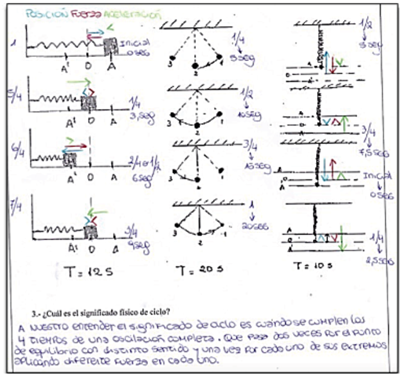 POSICIÓN FUERZA ACELERACIÓN
1
Inicial
0 seg
A' O A
1/4
5 seg
3 2 1
1/2
5 seg
5/4
1/4
3 seg
A' O A
1/2
10 seg
3 2 1
3/4
7,5 seg
6/4
2/4 o 1/2
6 seg
A' O A
3/4
15 seg
3 2 1
Inicial
0 seg
7/4
3/4
9 seg
A' O A
1
20 seg
3 2 1
1/4
2,5 seg
T = 12 s T = 20 s T = 10 s
3.- ¿Cuál es el significado físico de ciclo?
A NUESTRO ENTENDER El SIGNIFICADO DE CICLO ES CUANDO SE CUMPLEN LOS
4 TIEMPOS DE UNA OSCILACIÓN COMPLETA. QUE PASA DOS VECES POR EL PUNTO
DE EQUILIBRIO CON DISTINTO SENTIDO Y UNA VEZ POR CADA UNO DE SUS EXTREMOS
APLICANDO DIFERENTE FUERZA EN CADA UNO.